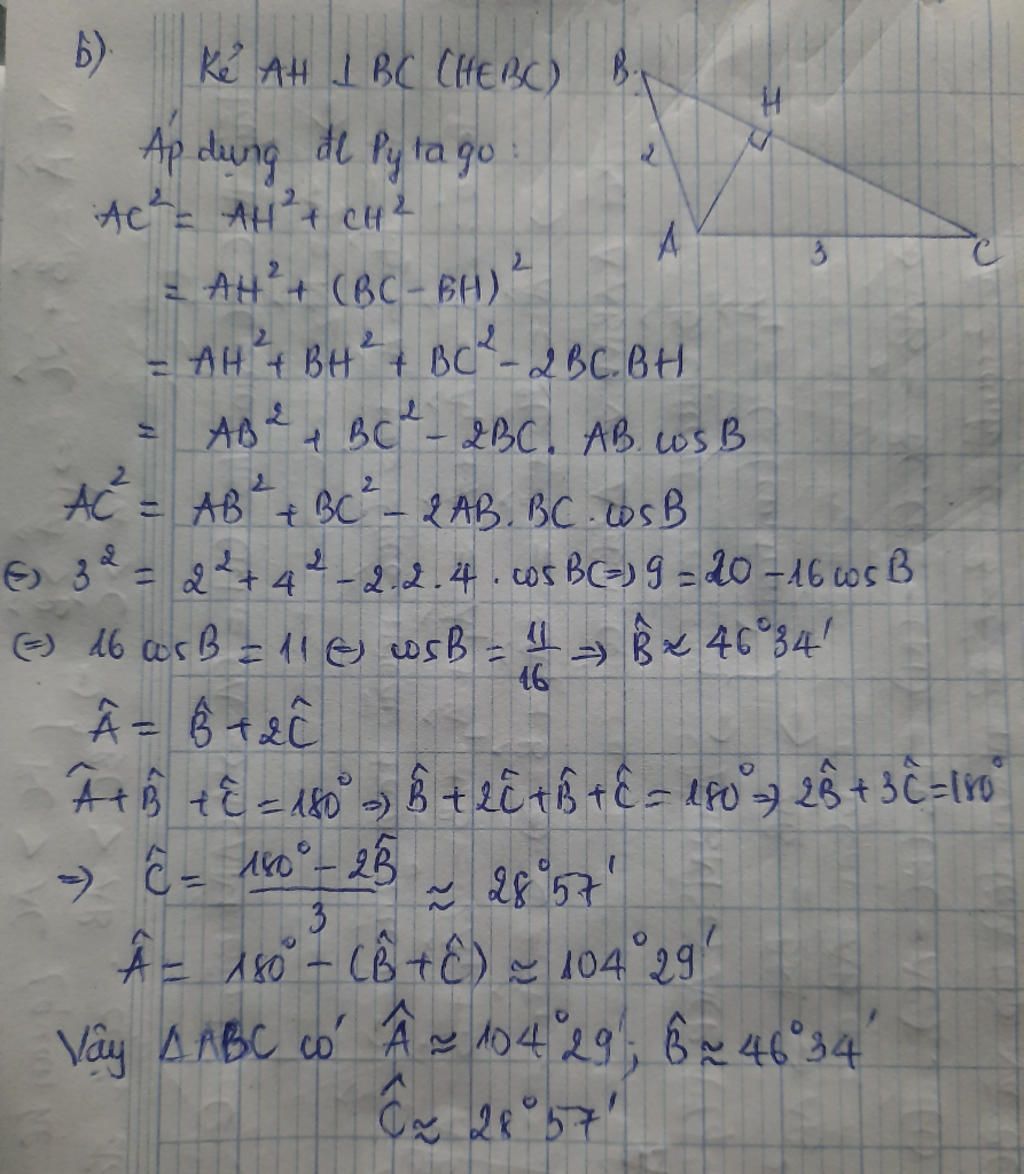 b).
Kẻ AH ⊥ BC (H∈BC)
B
H
2
A
3
C
Áp dụng đl Pytago:
AC² = AH² + CH²
= AH² + (BC - BH)²
= AH² + BH² + BC² - 2BC.BH
= AB² + BC² - 2BC. AB. cosB
AC² = AB² + BC² - 2AB. BC. cosB
⇔ 3² = 2² + 4² - 2.2.4. cosB ⇔ 9 = 20 - 16 cosB
⇔ 16 cosB = 11 ⇔ cosB = 11/16 ⇒ B̂ ≈ 46°34'
Â = B̂ + 2Ĉ
Â + B̂ + Ĉ = 180° ⇒ B̂ + 2Ĉ + B̂ + Ĉ = 180° ⇒ 2B̂ + 3Ĉ = 180°
⇒ Ĉ = (180° - 2B̂)/3 ≈ 28°57'
Â = 180° - (B̂ + Ĉ) ≈ 104°29'
Vậy ΔABC có Â ≈ 104°29'; B̂ ≈ 46°34'
Ĉ ≈ 28°57'